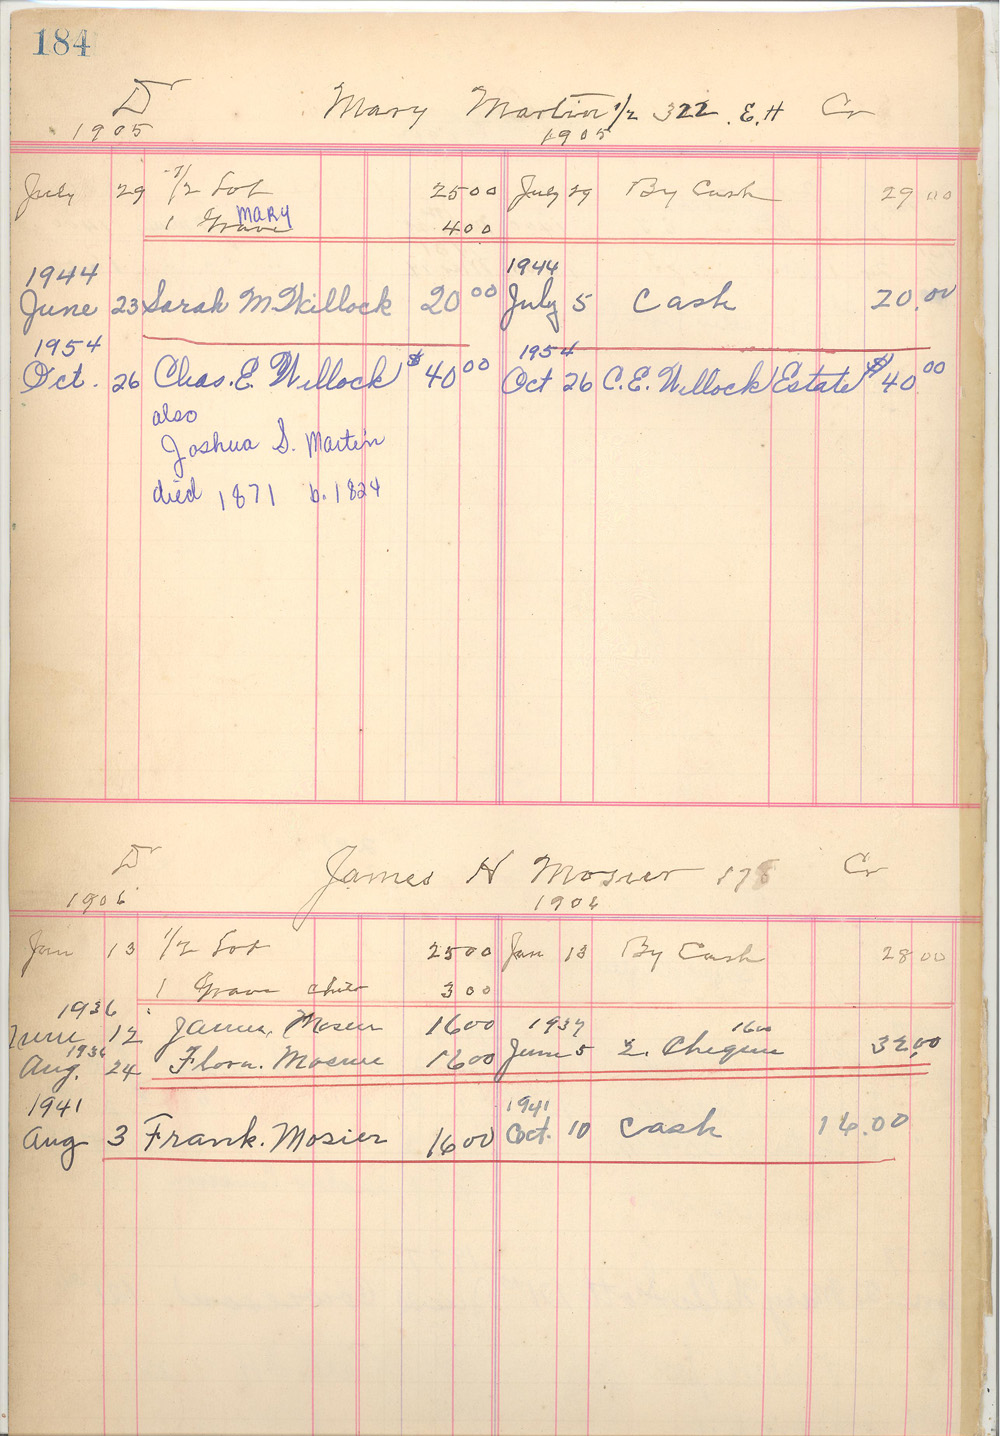 184
Dr Mary Martin 1/2 322 . E. H Cr
1905 1905
July 29 1/2 Lot 25 00 July 29 By Cash 29 00
MARY
1 Grave 4 00
1944 1944
June 23 Sarah M. Willock 20 00 July 5 Cash 20.00
1954 1954
Oct. 26 Chas. E. Willock $ 40 00 Oct 26 C. E. Willock Estate $ 40 00
also
Joshua S. Martin
died 1871 b. 1824
Dr James H Mosier 178 Cr
1906 1906
Jan 13 1/2 Lot 25 00 Jan 13 By Cash 28 00
1 Grave child 3 00
1936
June 12 James. Mosier 16 00 1937 16 00
1936
Aug. 24 Flora. Mosier 16 00 June 5 2. Cheques 32.00
1941 1941
Aug 3 Frank. Mosier 16 00 Oct. 10 Cash 16.00